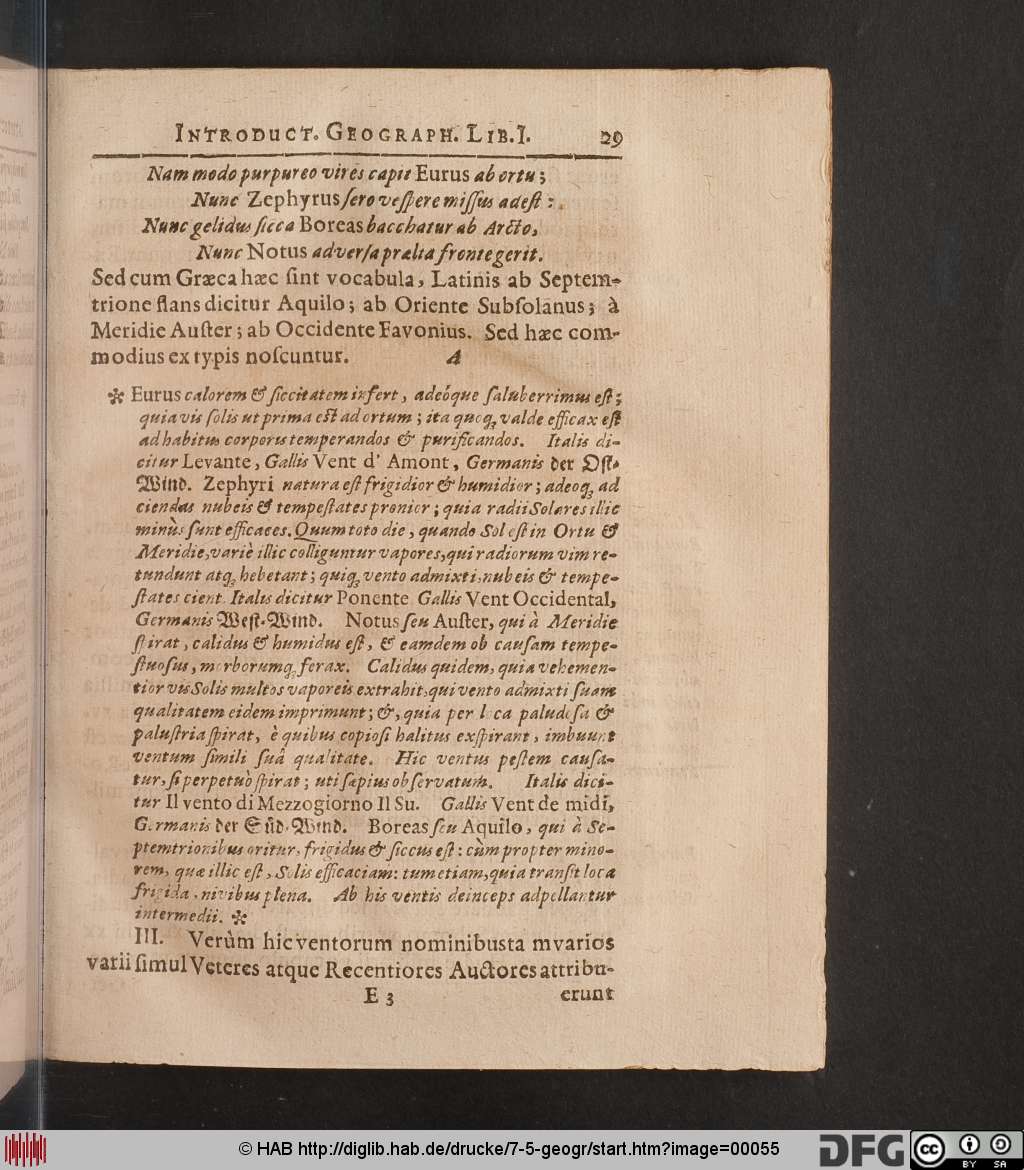 INTRODUCT. GEOGRAPH. LIB. I. 29
Nam modo purpureo vires capit Eurus ab ortu;
Nunc Zephyrus ſero veſpere miſſus adeſt :
Nunc gelidus ſicca Boreas bacchatur ab Arcto,
Nunc Notus adverſa prælia fronte gerit.
Sed cum Græca hæc ſint vocabula, Latinis ab Septem-
trione flans dicitur Aquilo; ab Oriente Subſolanus; à
Meridie Auſter; ab Occidente Favonius. Sed hæc com-
modius ex typis noſcuntur. A
✼ Eurus calorem & ſiccitatem infert, adeóque ſaluberrimus eſt;
quia vis ſolis ut prima eſt ad ortum; ita quoq; valde efficax eſt
ad habitus corporis temperandos & purificandos. Italis di-
citur Levante, Gallis Vent d' Amont, Germanis der Oſt-
Wind. Zephyri natura eſt frigidior & humidior; adeoq; ad
ciendas nubeis & tempeſtates pronior; quia radii Solares illic
minùs ſunt efficaces. Quum toto die, quando Sol eſt in Ortu &
Meridie, variè illic colliguntur vapores, qui radiorum vim re-
tundunt atq; hebetant; quiq; vento admixti, nubeis & tempe-
ſtates cient. Italis dicitur Ponente Gallis Vent Occidental,
Germanis Weſt-Wind. Notus ſeu Auſter, qui à Meridie
ſpirat, calidus & humidus eſt, & eamdem ob cauſam tempe-
ſtuoſus, morborumq; ferax. Calidus quidem, quia vehemen-
tior vis Solis multos vaporeis extrahit, qui vento admixti ſuam
qualitatem eidem imprimunt; &, quia per loca paludoſa &
paluſtria ſpirat, è quibus copioſi halitus exſpirant, imbuunt
ventum ſimili ſuâ qualitate. Hic ventus peſtem cauſa-
tur, ſi perpetuò ſpirat; uti ſæpius obſervatum. Italis dici-
tur Il vento di Mezzogiorno Il Su. Gallis Vent de midi,
Germanis der Süd-Wind. Boreas ſeu Aquilo, qui à Se-
ptemtrionibus oritur, frigidus & ſiccus eſt: cùm propter mino-
rem, quæ illic eſt, Solis efficaciam: tum etiam, quia tranſit loca
frigida, nivibus plena. Ab his ventis deinceps adpellantur
intermedii. ✼
III. Verùm hic ventorum nominibusta mvarios
varii ſimul Veteres atque Recentiores Auctores attribu-
E 3 erunt
© HAB http://diglib.hab.de/drucke/7-5-geogr/start.htm?image=00055
DFG cc BY SA